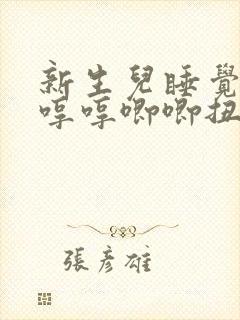 新生兒睡覺
哼哼唧唧扭
張彥雄